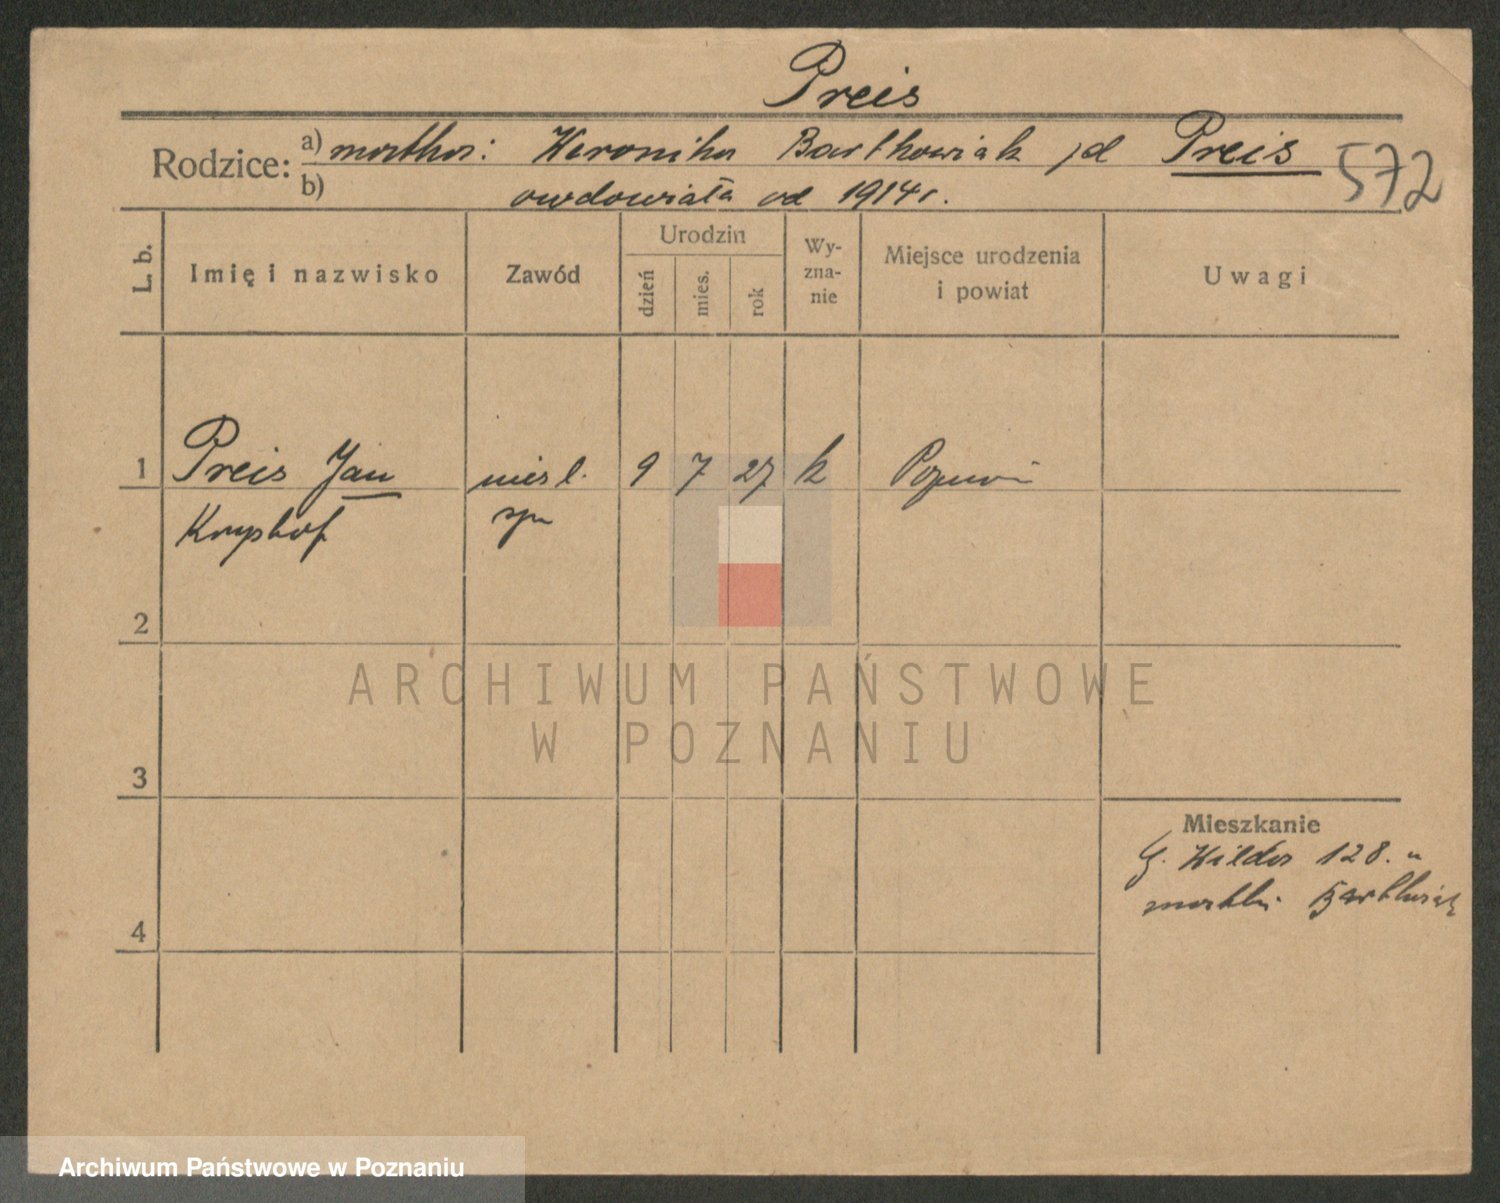 Preis
Rodzice: a) matka: Weronika Bartkowiak jd Preis 572
b) owdowiała od 1914 r.
L. b. Imię i nazwisko Zawód Urodzin dzień mies. rok Wy-zna-nie Miejsce urodzenia i powiat Uwagi
1 Preis Jan nieśl. 9 7 27 k Poznań
Krysztof syn
2
ARCHIWUM PAŃSTWOWE
W POZNANIU
3
Mieszkanie
G. Wilda 128. u
matki Bartkowiak
4
Archiwum Państwowe w Poznaniu